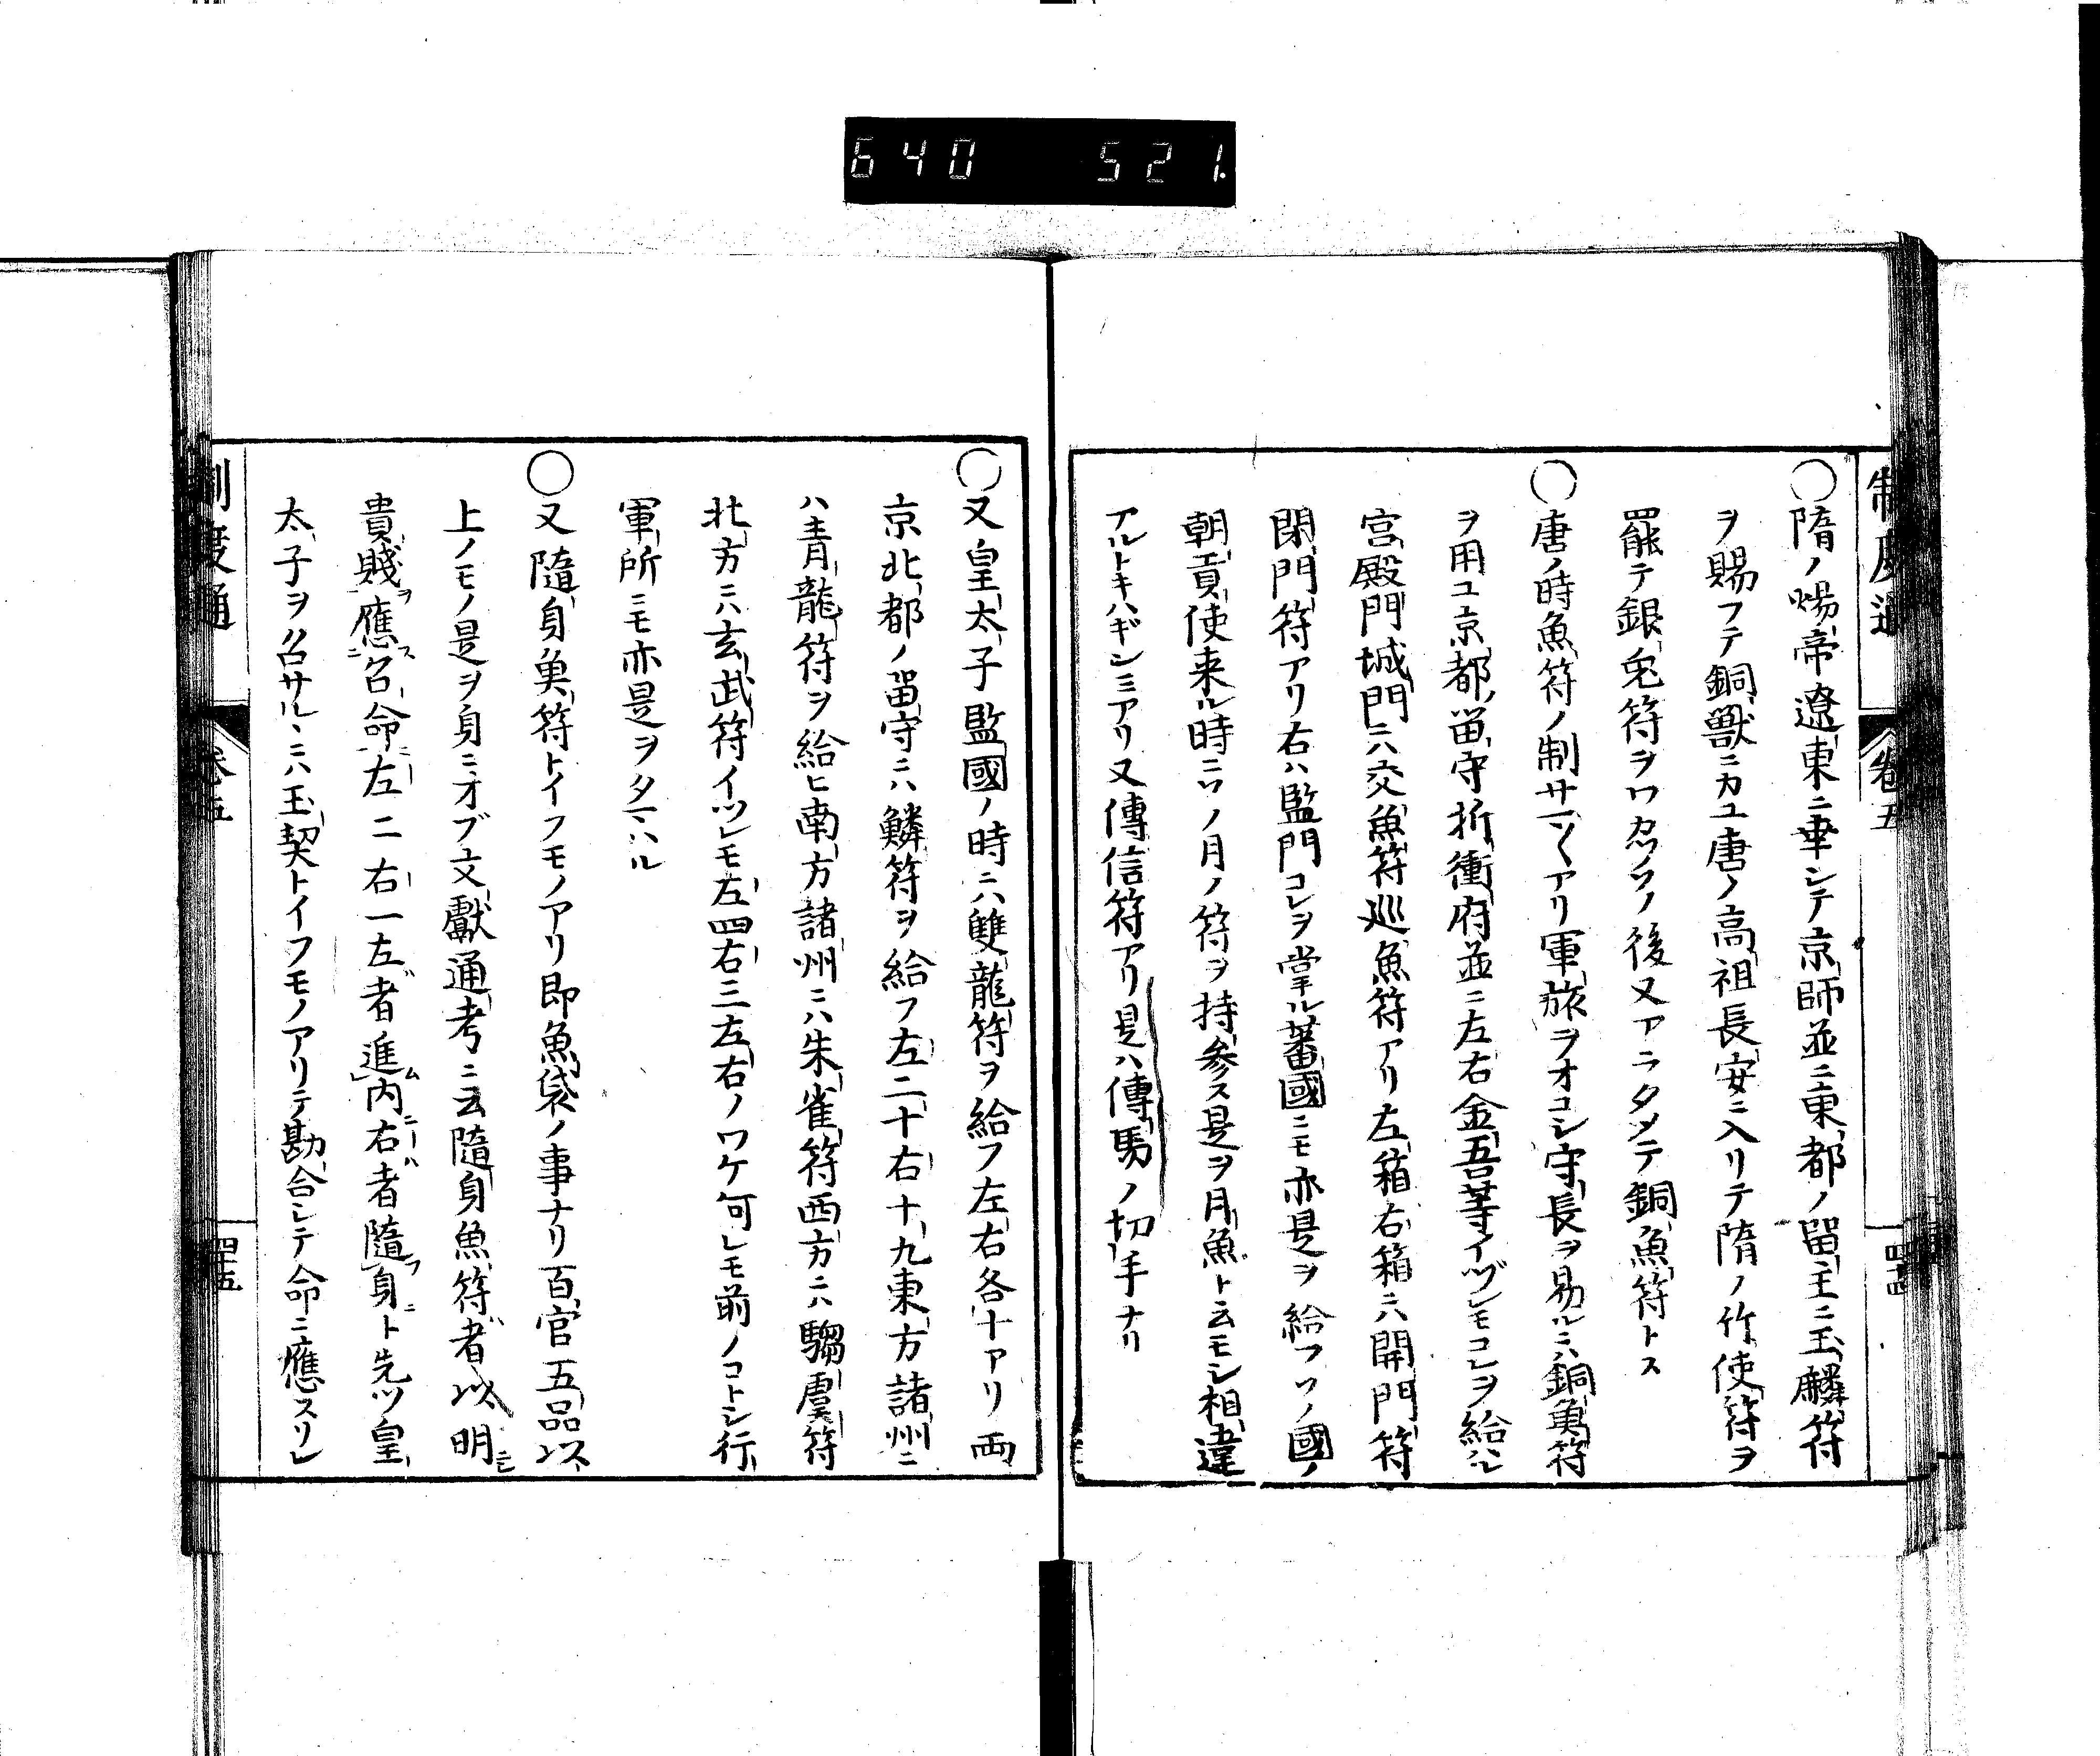 640 521.
制度通 卷五 四十四
○隋ノ煬帝遼東ニ事シテ京師並ニ東都ノ留主ニ玉麟符
ヲ賜フテ銅獣ニカユ唐ノ高祖長安ニ入リテ隋ノ竹使符ヲ
罷テ銀兎符ヲワカツソノ後又アラタメテ銅魚符トス
○唐ノ時魚符ノ制サマ〱アリ軍旅ヲオコシ守長ヲ易ルニハ銅魚符
ヲ用ユ京都畄守折衝府並ニ左右金吾等イヅレモコレヲ給ハル
宮殿門城門ニハ交魚符巡魚符アリ左箱右箱ニハ開門符
閉門符アリ右ハ監門コレヲ掌ル蕃國ニモ亦是ヲ給フソノ國ノ
朝貢使来ル時ニソノ月ノ符ヲ持参ス是ヲ月魚ト云モシ相違
アルトキハギンミアリ又傳信符アリ是ハ傳馬ノ切手ナリ
○又皇太子監國ノ時ニハ雙龍符ヲ給フ左右各十アリ両
京北都ノ畄守ニハ鱗符ヲ給フ左二十右十九東方諸州ニ
ハ青龍符ヲ給ヒ南方諸州ニハ朱雀符西方ニハ騶虞符
北方ニハ玄武符イツレモ左四右三左右ノワケ何レモ前ノコトシ行
軍所ニモ亦是ヲタマハル
○又隨身魚符トイフモノアリ即魚袋ノ事ナリ百官五品以
上ノモノ是ヲ身ニオブ文獻通考ニ云隨身魚符者以明
貴賤應召命左二右一左者進内右者隨身ト先ツ皇
太子ヲ召サルヽニハ玉契トイフモノアリテ勘合シテ命ニ應スリレ
制度通 卷五 四十五